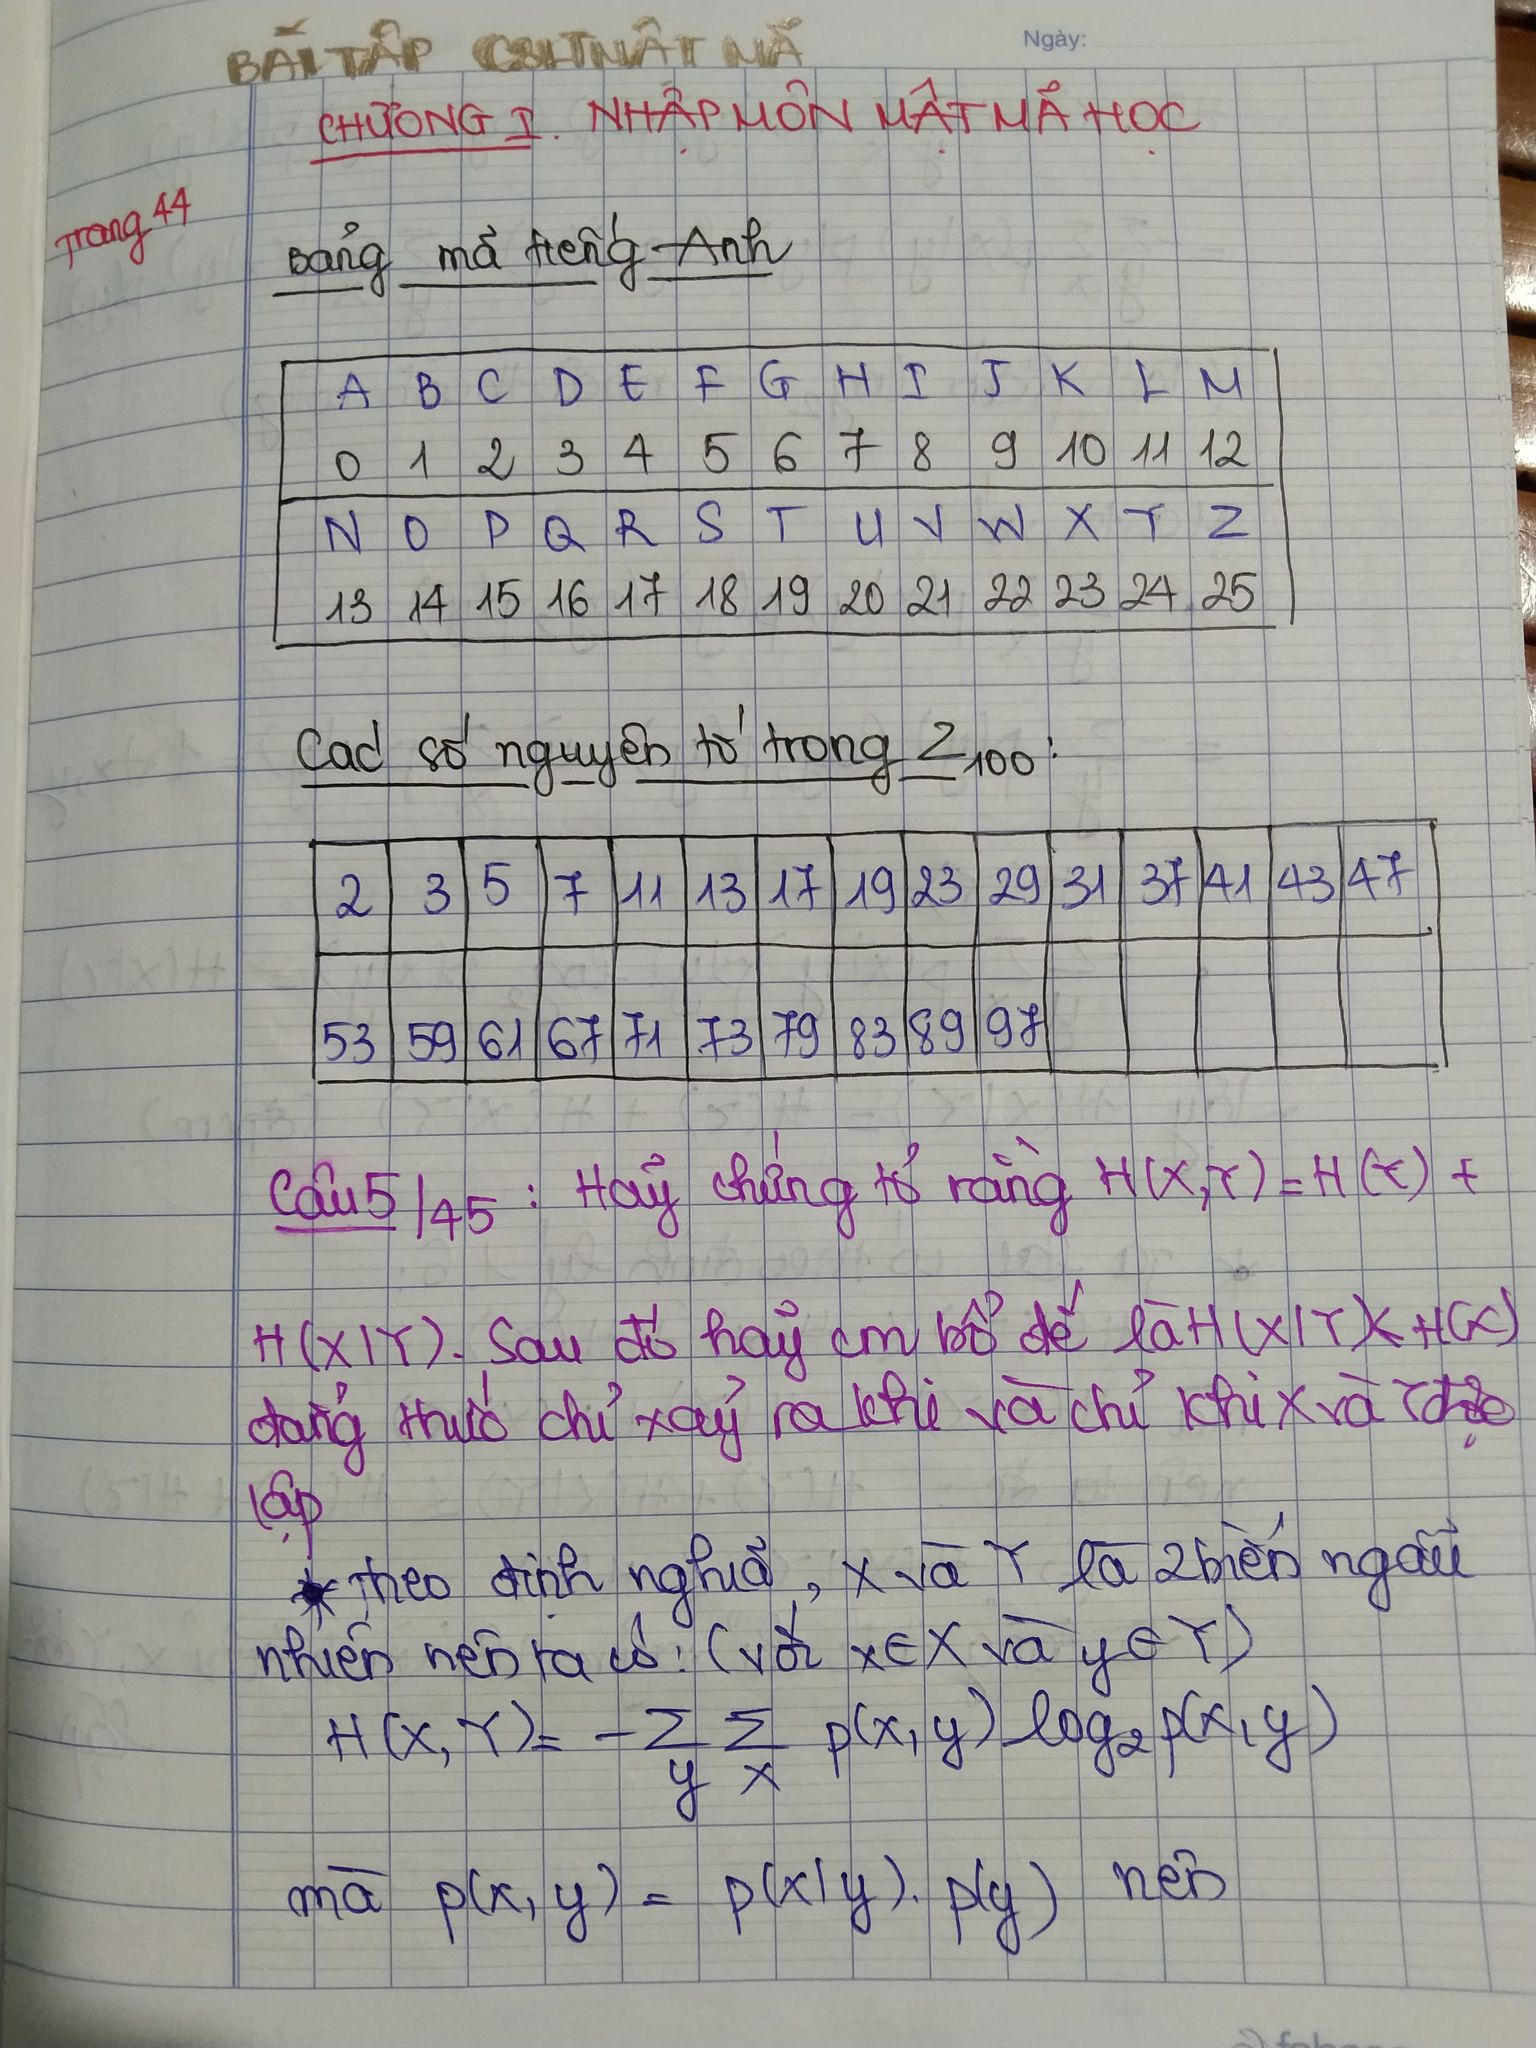 BÀI TẬP CSLT MẬT MÃ
Ngày:
CHƯƠNG I. NHẬP MÔN MẬT MÃ HỌC
Trang 44
Bảng mã tiếng Anh
A B C D E F G H I J K L M
0 1 2 3 4 5 6 7 8 9 10 11 12
N O P Q R S T U V W X Y Z
13 14 15 16 17 18 19 20 21 22 23 24 25
Các số nguyên tố trong Z₁₀₀:
2 3 5 7 11 13 17 19 23 29 31 37 41 43 47
53 59 61 67 71 73 79 83 89 97
Câu 5/45: Hãy chứng tỏ rằng H(X,Y) = H(Y) +
H(X|Y). Sau đó hãy cm bổ đề là H(X|Y) < H(X)
đẳng thức chỉ xảy ra khi và chỉ khi X và Y độc
lập
* Theo định nghĩa, X và Y là 2 biến ngẫu
nhiên nên ta có: (với x∈X và y∈Y)
H(X,Y) = -∑y ∑x p(x,y) log₂ p(x,y)
mà p(x,y) = p(x|y). p(y) nên